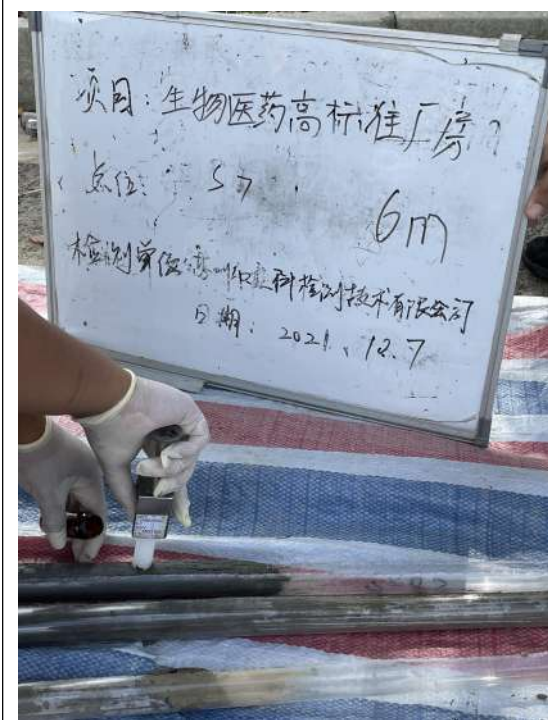 项目：生物医药高标准厂房
点位： S7 6m
检测单位：科检测技术有限公司
日期：2021.12.7